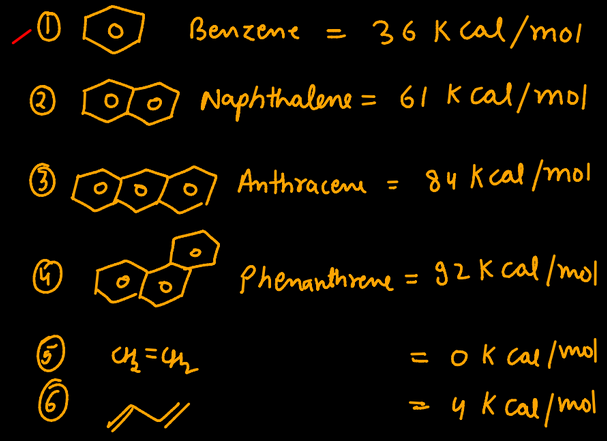 ① Benzene = 36 Kcal/mol
② Naphthalene = 61 Kcal/mol
③ Anthracene = 84 Kcal/mol
④ Phenanthrene = 92 Kcal/mol
⑤ CH₂=CH₂ = 0 Kcal/mol
⑥ = 4 Kcal/mol